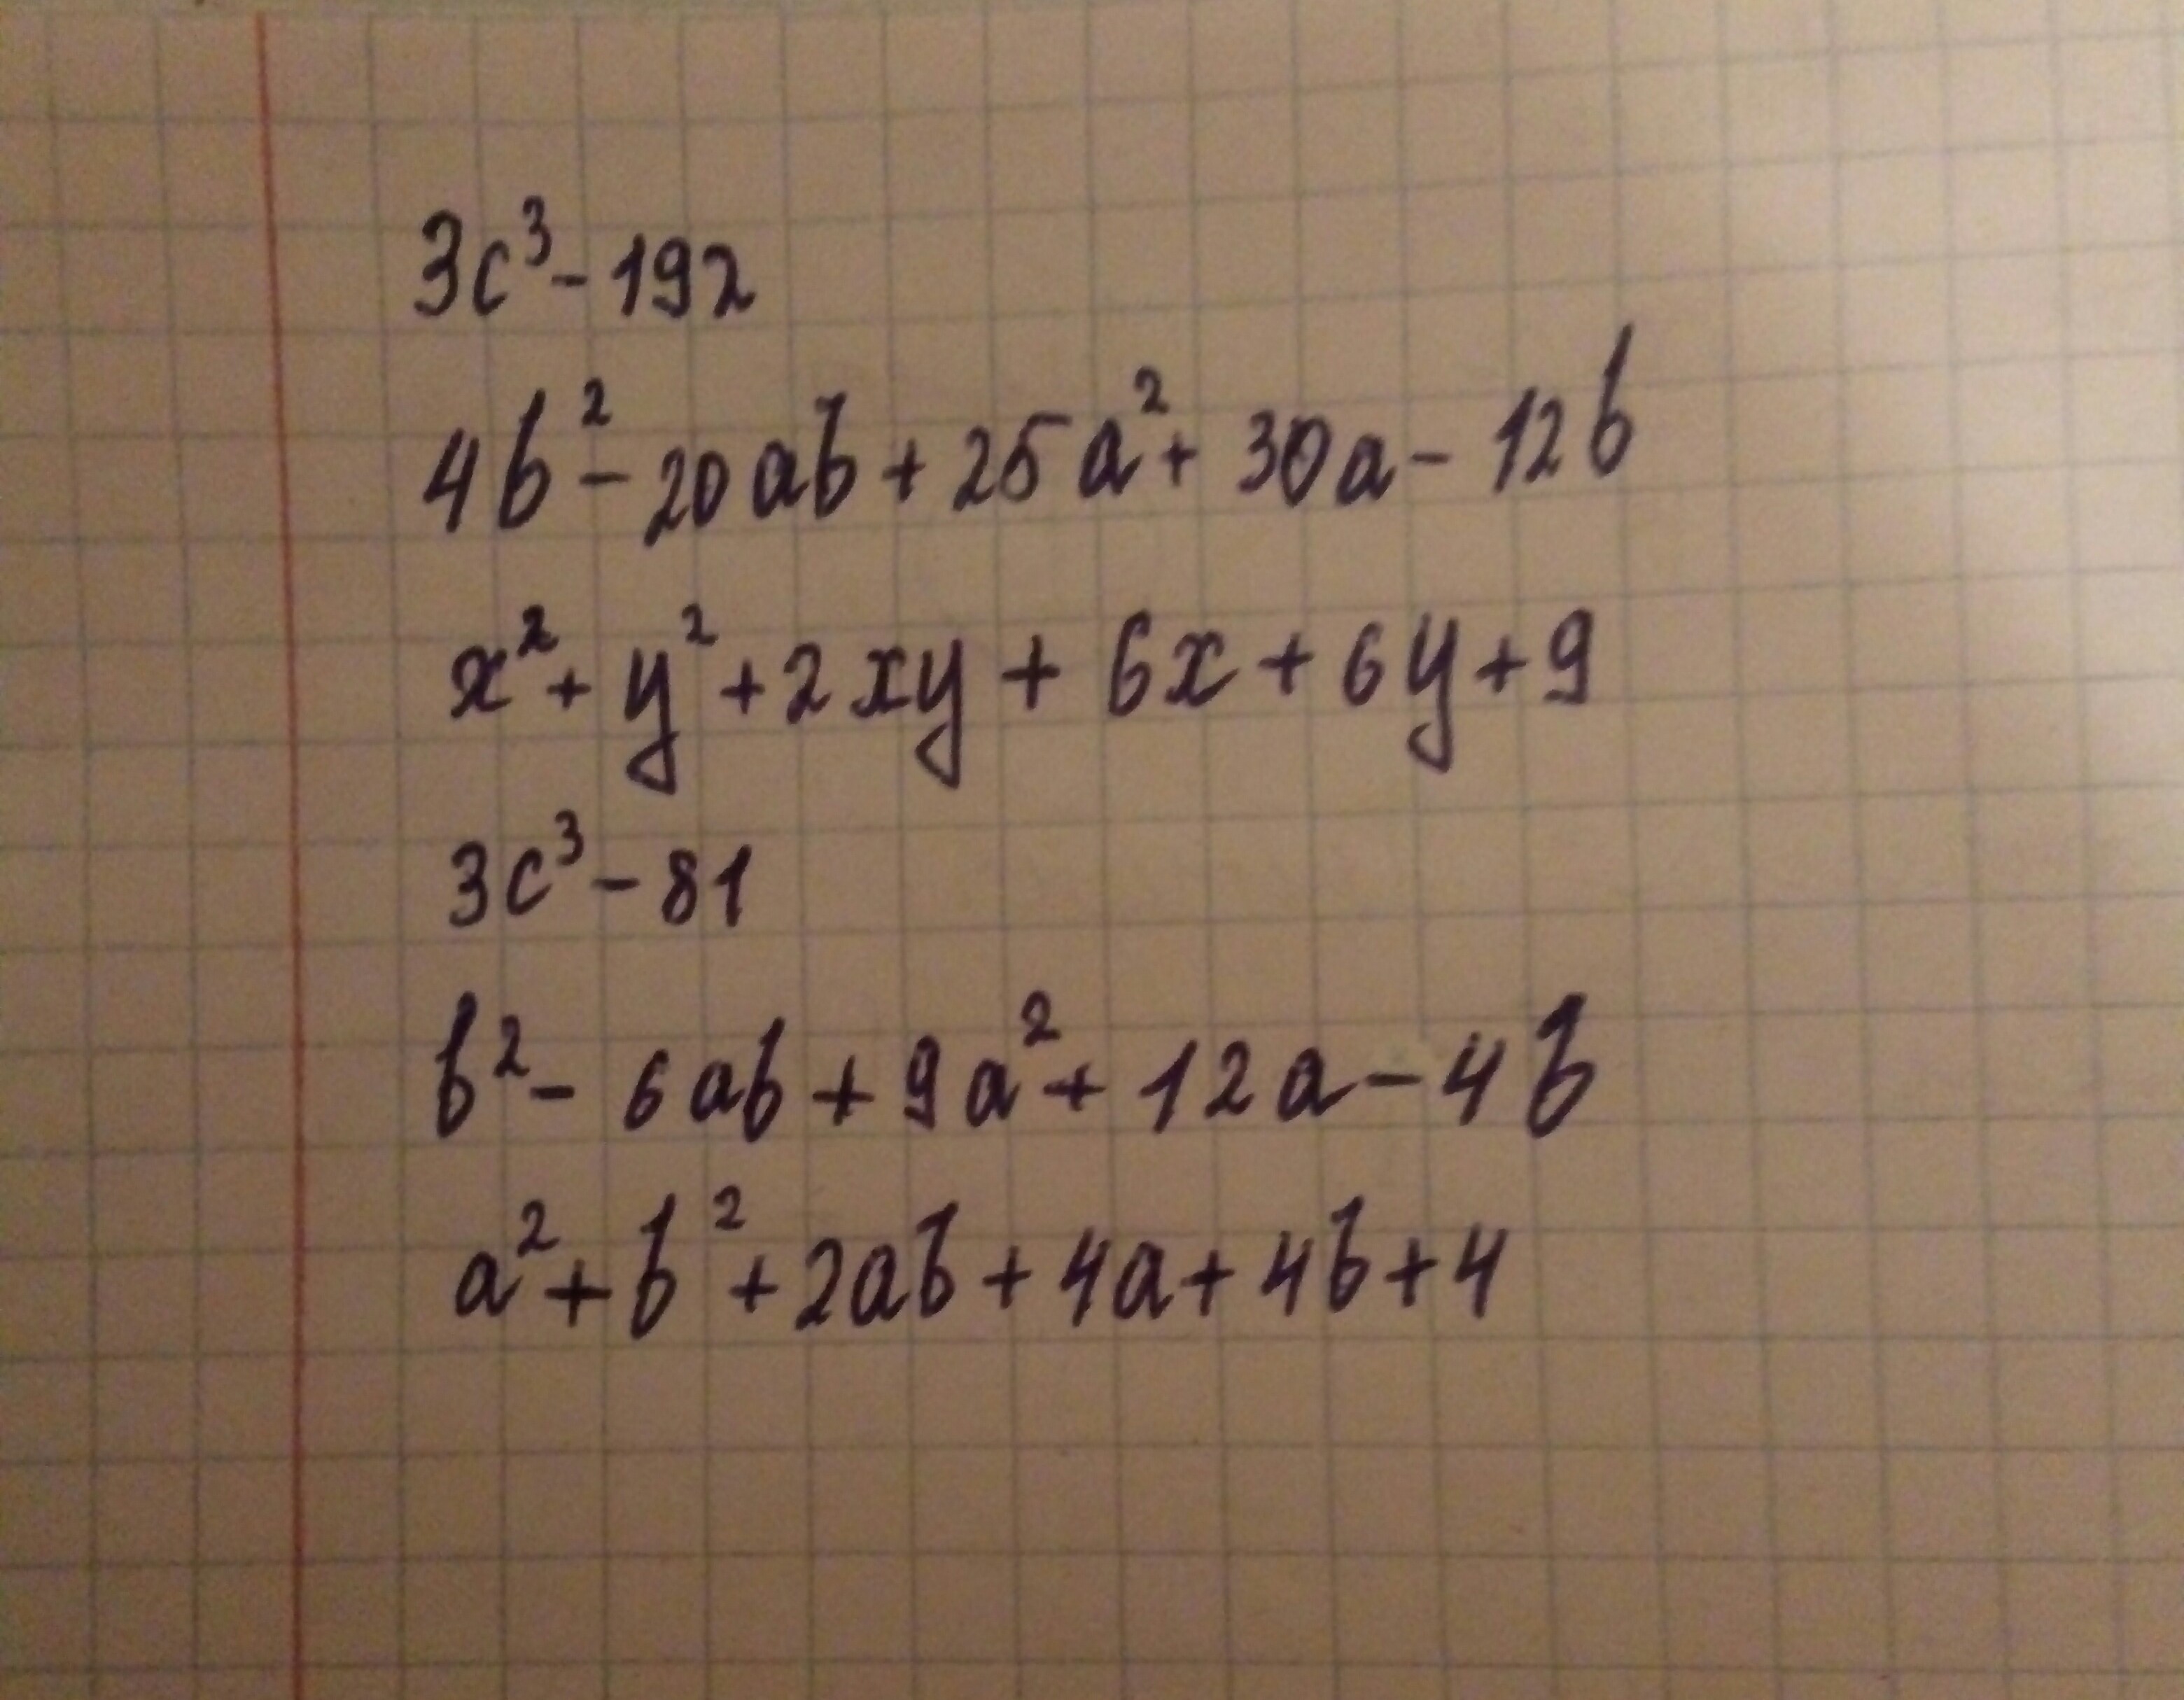 3c³-192
4b²-20ab+25a²+30a-12b
x²+y²+2xy+6x+6y+9
3c³-81
b²-6ab+9a²+12a-4b
a²+b²+2ab+4a+4b+4